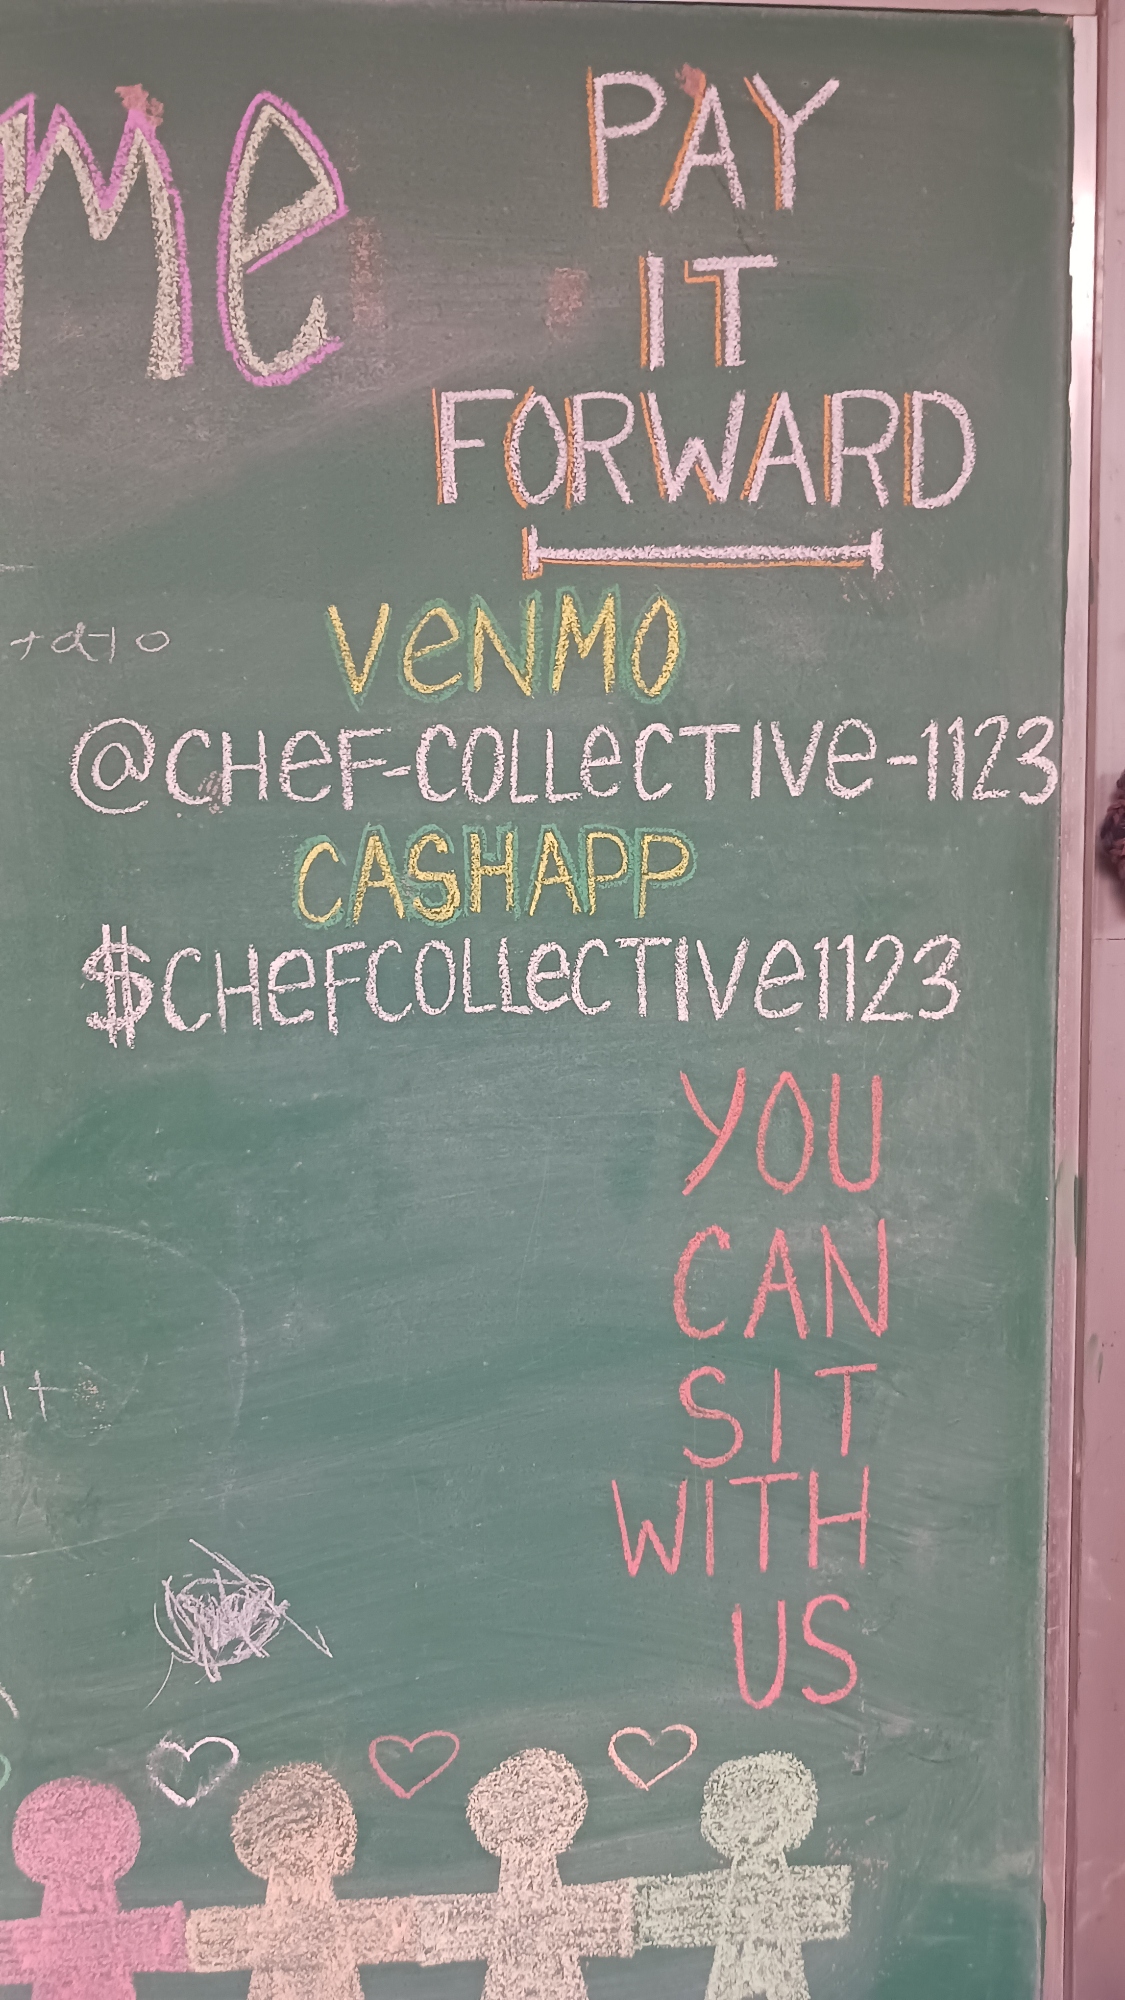 me
PAY
IT
FORWARD
VeNMO
@CHeF-COLLeCTIVe-1123
CASHAPP
$CHeFCOLLeCTIVe1123
YOU
CAN
SIT
WITH
US